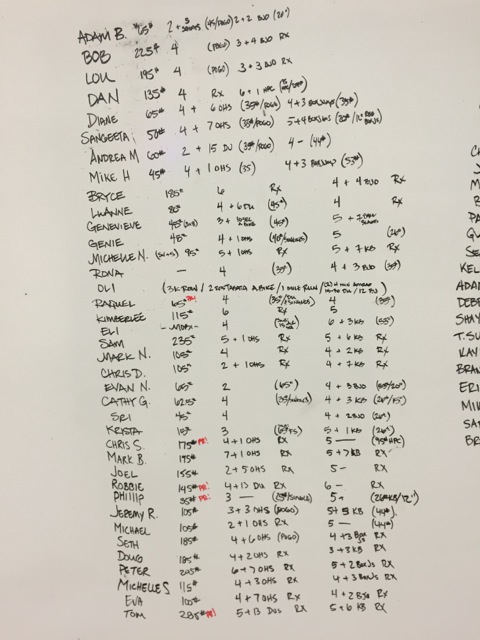 ADAM B. 65# 2+ (45/POGO) 2+2 BUO (20")
BOB 225# 4 (POGO) 3+4 BUO RX
LOU 195# 4 (POGO) 3+3 BUO RX
DAN 135# 4 RX 6+1 HPC
DIANE 65# 4+6 OHS (35#/POGO) 4+3 BOXJUMPS (35#)
SANGEETA 50# 4+7 OHS (35#/POGO) 5+4 BOXJUMPS
ANDREA M 60# 2+15 DU (35#/POGO) 4- (44#)
MIKE H 45# 4+1 OHS (35) 4+3 BOXJUMP (53#)
BRYCE 185# 6 RX 4+4 BUO RX
LUANNE 80# 4+6 DU (45#) 4 RX
GENEVIEVE 45# 3+ (45#) 5+
GENIE 45# 4+1 OHS (40#/SINGLES) 5 (26#)
MICHELLE N. 95# 5+1 OHS RX 5+7 KB RX
RONA — 4 (35#) 4+3 BUO (35#)
OLI (3K ROW / 1 MILE RUN /
RAQUEL 65# PR! 4 4 (35#)
KIMBERLEE 115# 6 RX 5
ELI 4 6+3 KB (53#)
SAM 235# 5+1 OHS RX 5+6 KB RX
MARK N. 105# 4 RX 4+2 KB RX
CHRIS D. 105# 2+1 OHS RX 4+7 KB RX
EVAN N. 65# 2 (65#) 4+3 BUO (53/20")
CATHY G. 62.5# 4 (35/SINGLES) 4+3 KB (26#/15")
SRI 45# 4 4+2 BUO (26#)
KRISTA 18# 3 5+1 KB (26#)
CHRIS S. 175# PR! 4+1 OHS RX 5 — (95# HPC)
MARK B. 195# 7+1 OHS RX 5+7 KB RX
JOEL 155# 2+5 OHS RX 5- RX
ROBBIE 145# PR! 4+13 DU RX 6- RX
PHILLIP 35# PR! 3 — 5+ (26#KB/12")
JEREMY R. 105# 3+3 OHS (POGO) 5+5 KB (44#)
MICHAEL 105# 2+1 OHS RX 5 — (44#)
SETH 185# 4+6 OHS (POGO) 4+3 RX
DOUG 185# 4+2 OHS RX 3+3 KB RX
PETER 205# 6+7 OHS RX 5+2 BOXJS RX
MICHELLE S 115# 4+3 OHS RX 4+3 BOXJS RX
EVA 100# 4+7 OHS RX 4+2 RX
TOM 285# PR! 5+13 DUS RX 5+6 KB RX
C
J
M
B
PA
GU
SE
KEL
ADAM
DEBB
SHAY
T.SU
KAY
BRAN
ERI
MIK
SAR
BR